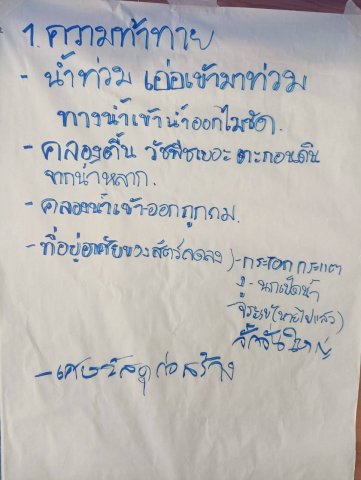 1. ความท้าทาย
- น้ำท่วม เอ่อเข้ามาท่วม
ทางน้ำเข้าน้ำออกไม่ชัด.
- คลองตื้น วัชพืชเยอะ ตะกอนดิน
จากน้ำหลาก.
- คลองน้ำเข้า-ออกถูกถม.
- ที่อยู่อาศัยของสัตว์ลดลง - กระรอก กระแต
- นกเป็ดน้ำ
จระเข้ (หายไปแล้ว)
จั๊กจั่นใหญ่
- เศษวัสดุก่อสร้าง